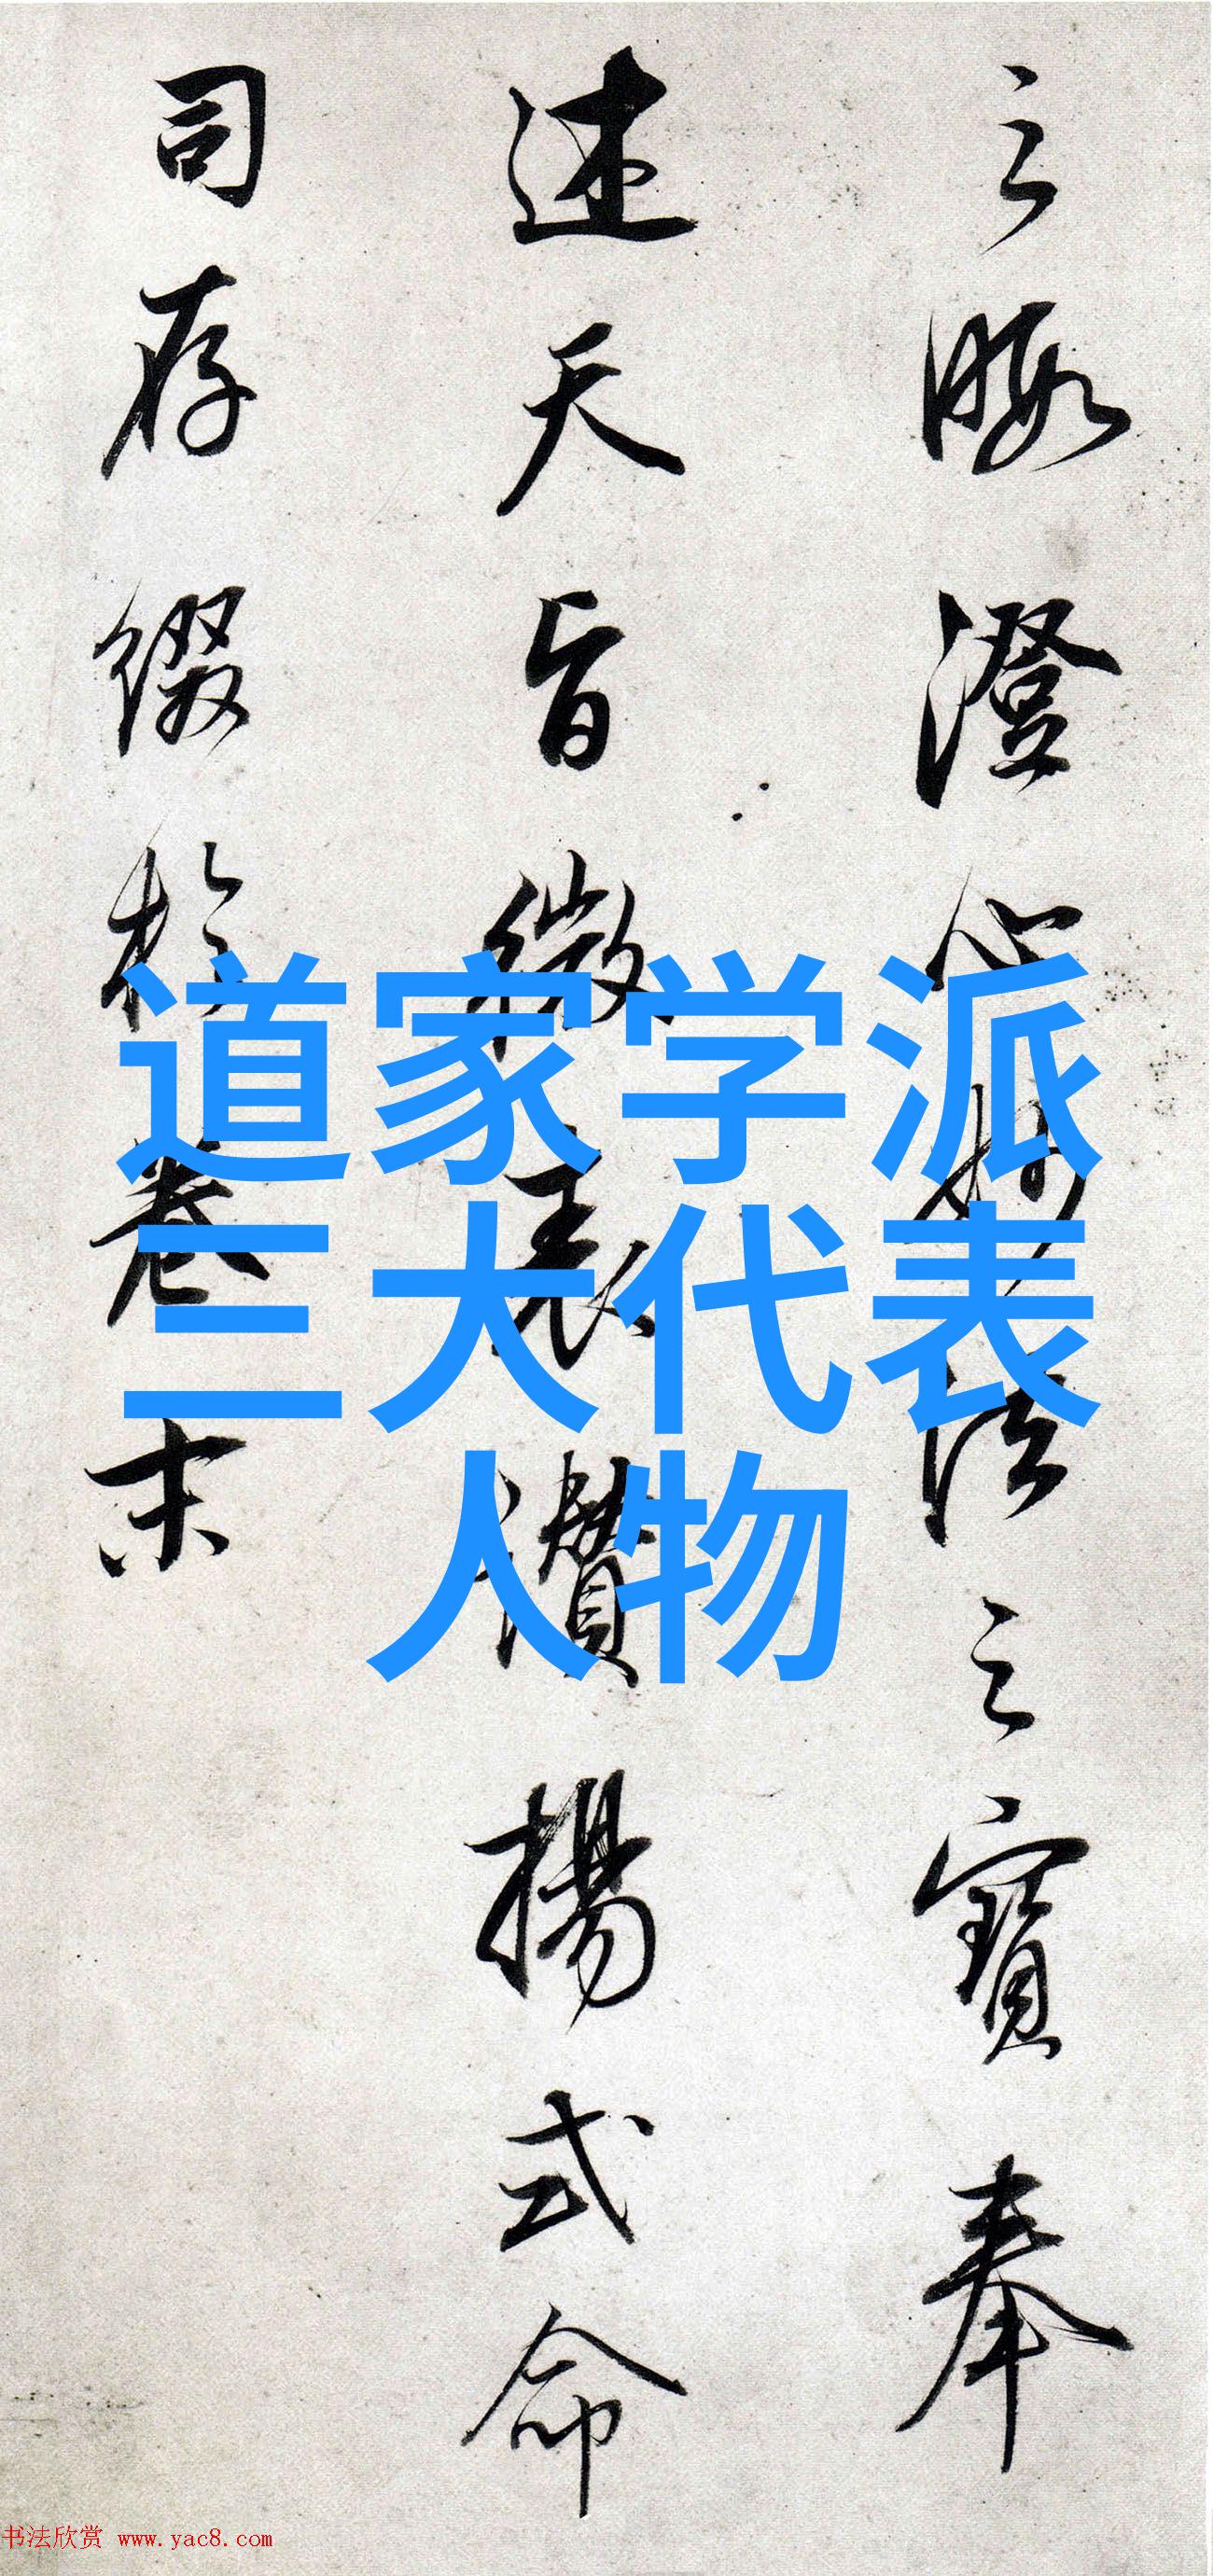 之暇澄心妙法之寶奉
述天旨微表讚揚式命
司存綴於卷末
道家学派
三大代表
人物
书法欣赏 www.yac8.com